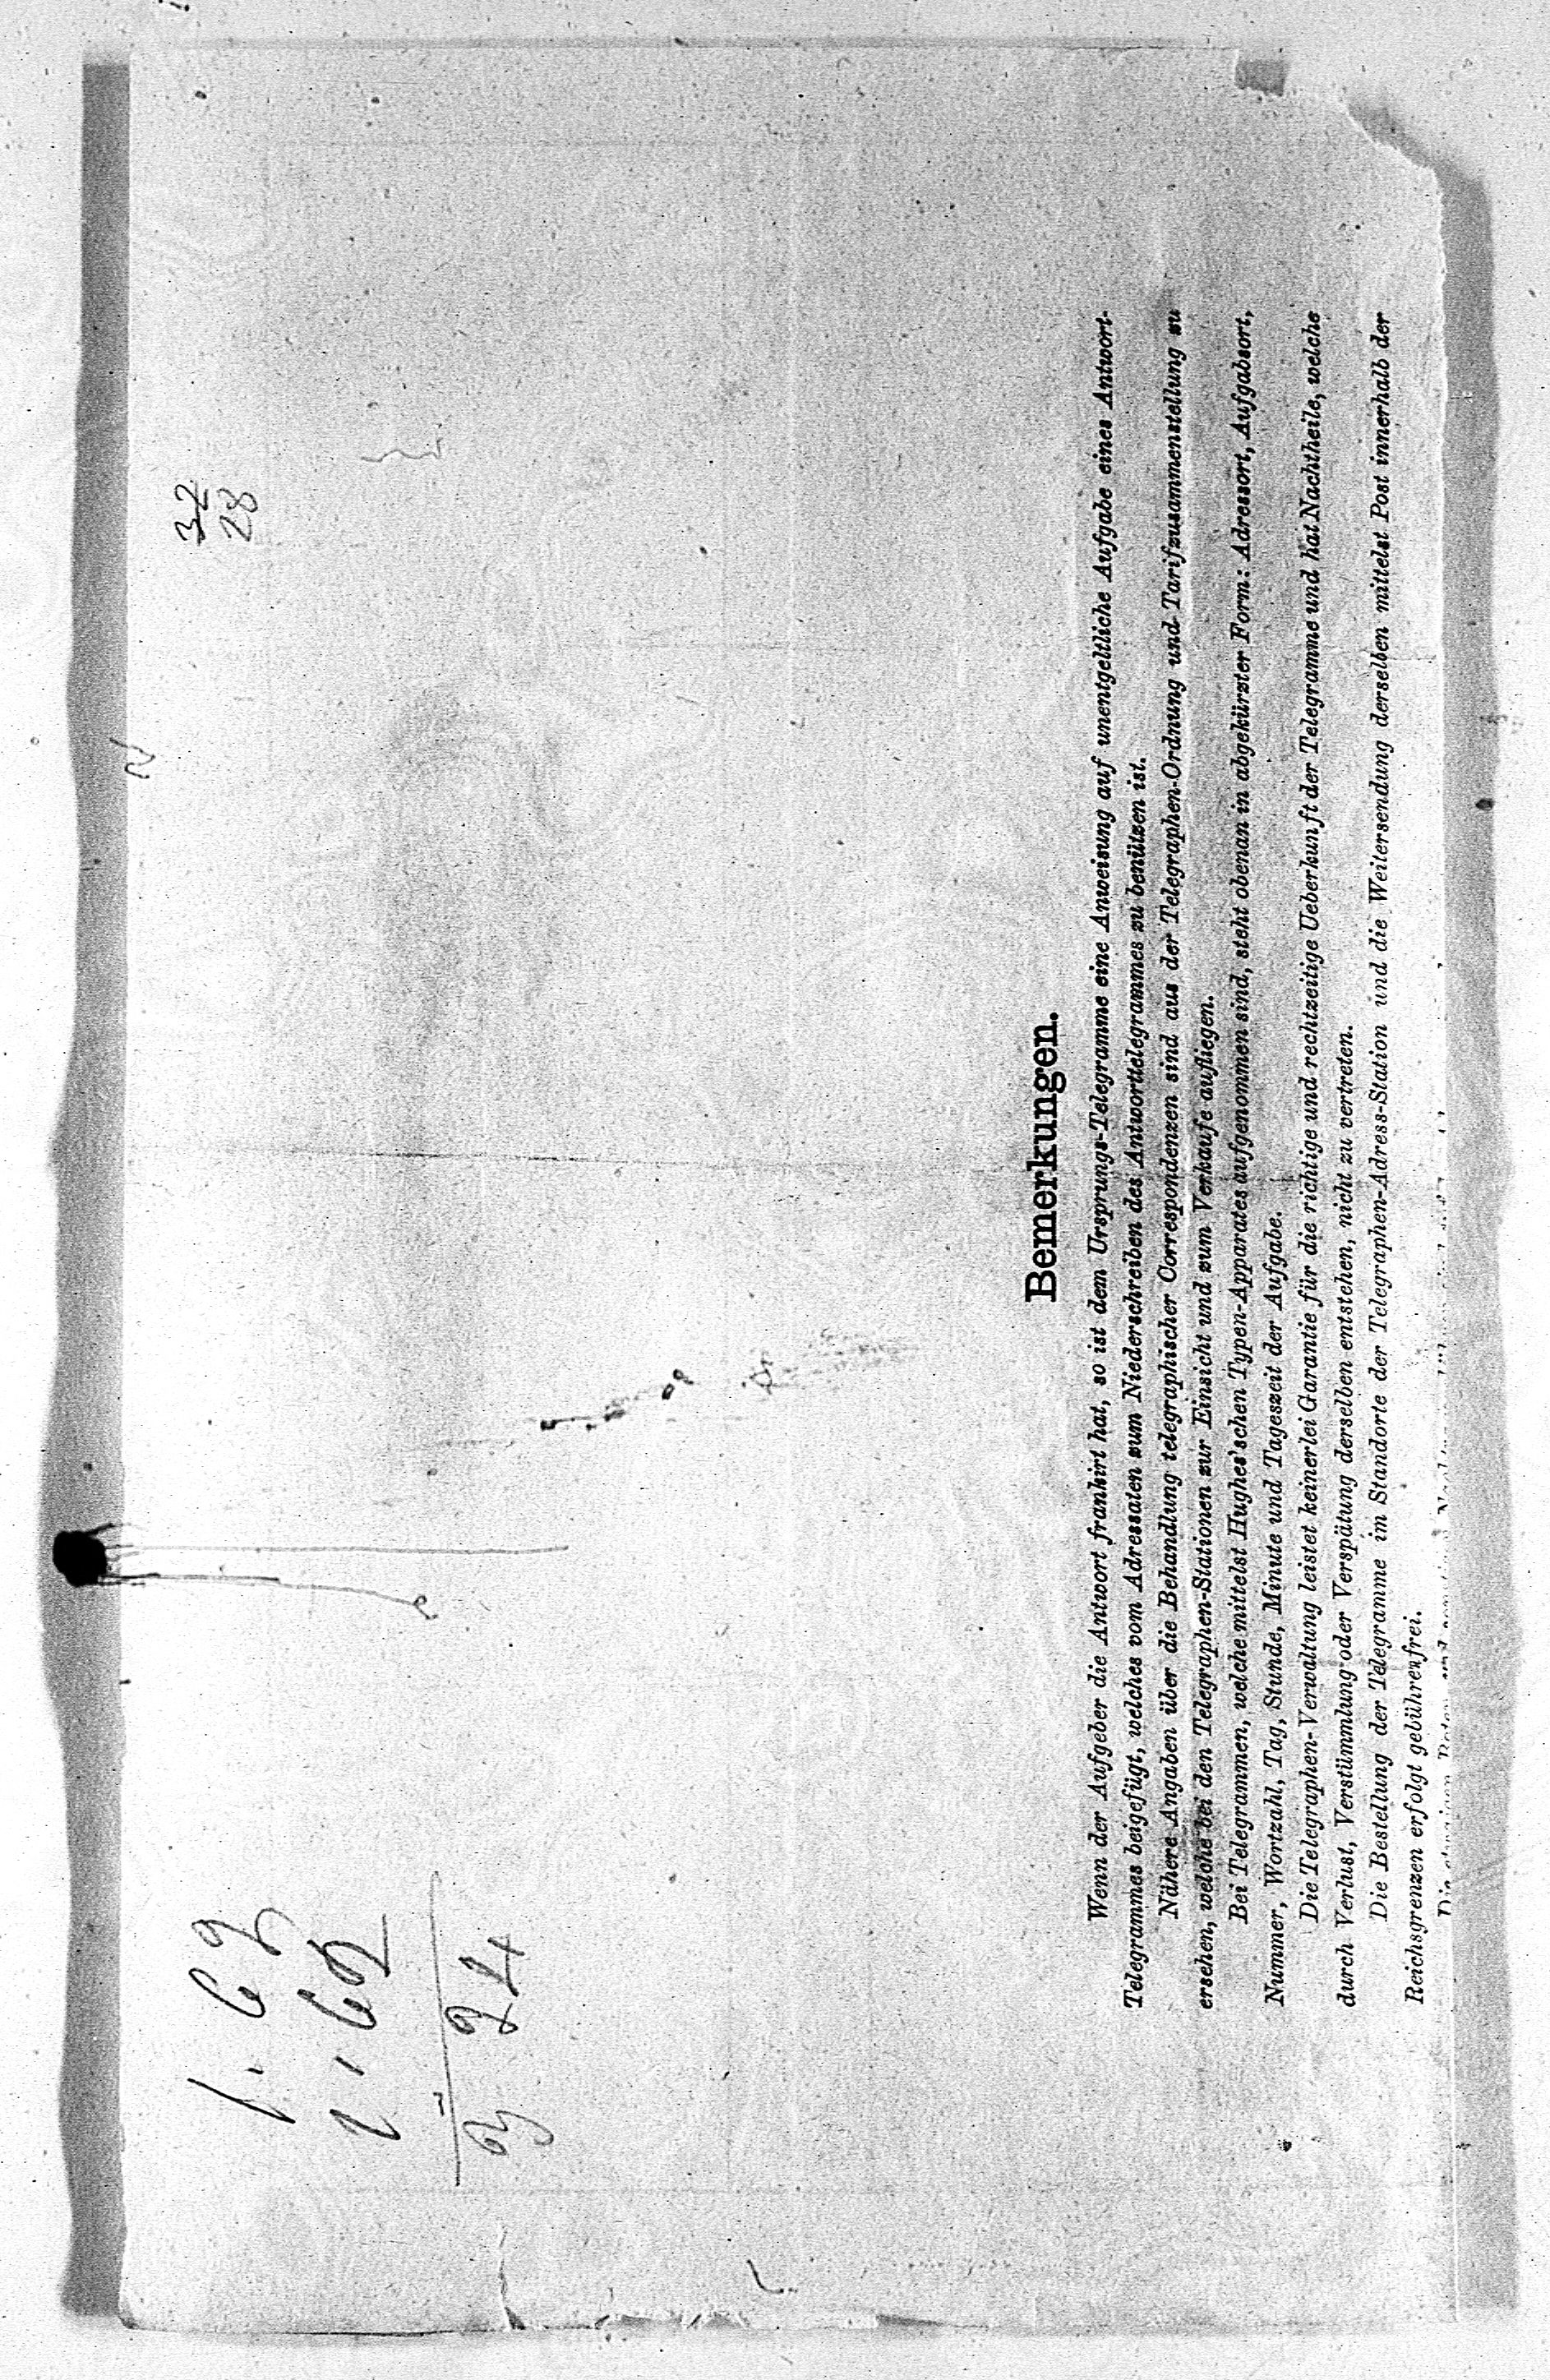 32
28
1.62
1.62
3 24
Bemerkungen.
Wenn der Aufgeber die Antwort frankirt hat, so ist dem Ursprungs-Telegramme eine Anweisung auf unentgeltliche Aufgabe eines Antwort-
Telegrammes beigefügt, welches vom Adressaten zum Niederschreiben des Antworttelegrammes zu benützen ist.
Nähere Angaben über die Behandlung telegraphischer Correspondenzen sind aus der Telegraphen-Ordnung und Tarifzusammenstellung zu
ersehen, welche bei den Telegraphen-Stationen zur Einsicht und zum Verkaufe aufliegen.
Bei Telegrammen, welche mittelst Hughes'schen Typen-Apparates aufgenommen sind, steht obenan in abgekürzter Form: Adressort, Aufgabsort,
Nummer, Wortzahl, Tag, Stunde, Minute und Tageszeit der Aufgabe.
Die Telegraphen-Verwaltung leistet keinerlei Garantie für die richtige und rechtzeitige Ueberkunft der Telegramme und hat Nachtheile, welche
durch Verlust, Verstümmlung oder Verspätung derselben entstehen, nicht zu vertreten.
Die Bestellung der Telegramme im Standorte der Telegraphen-Adress-Station und die Weitersendung derselben mittelst Post innerhalb der
Reichsgrenzen erfolgt gebührenfrei.